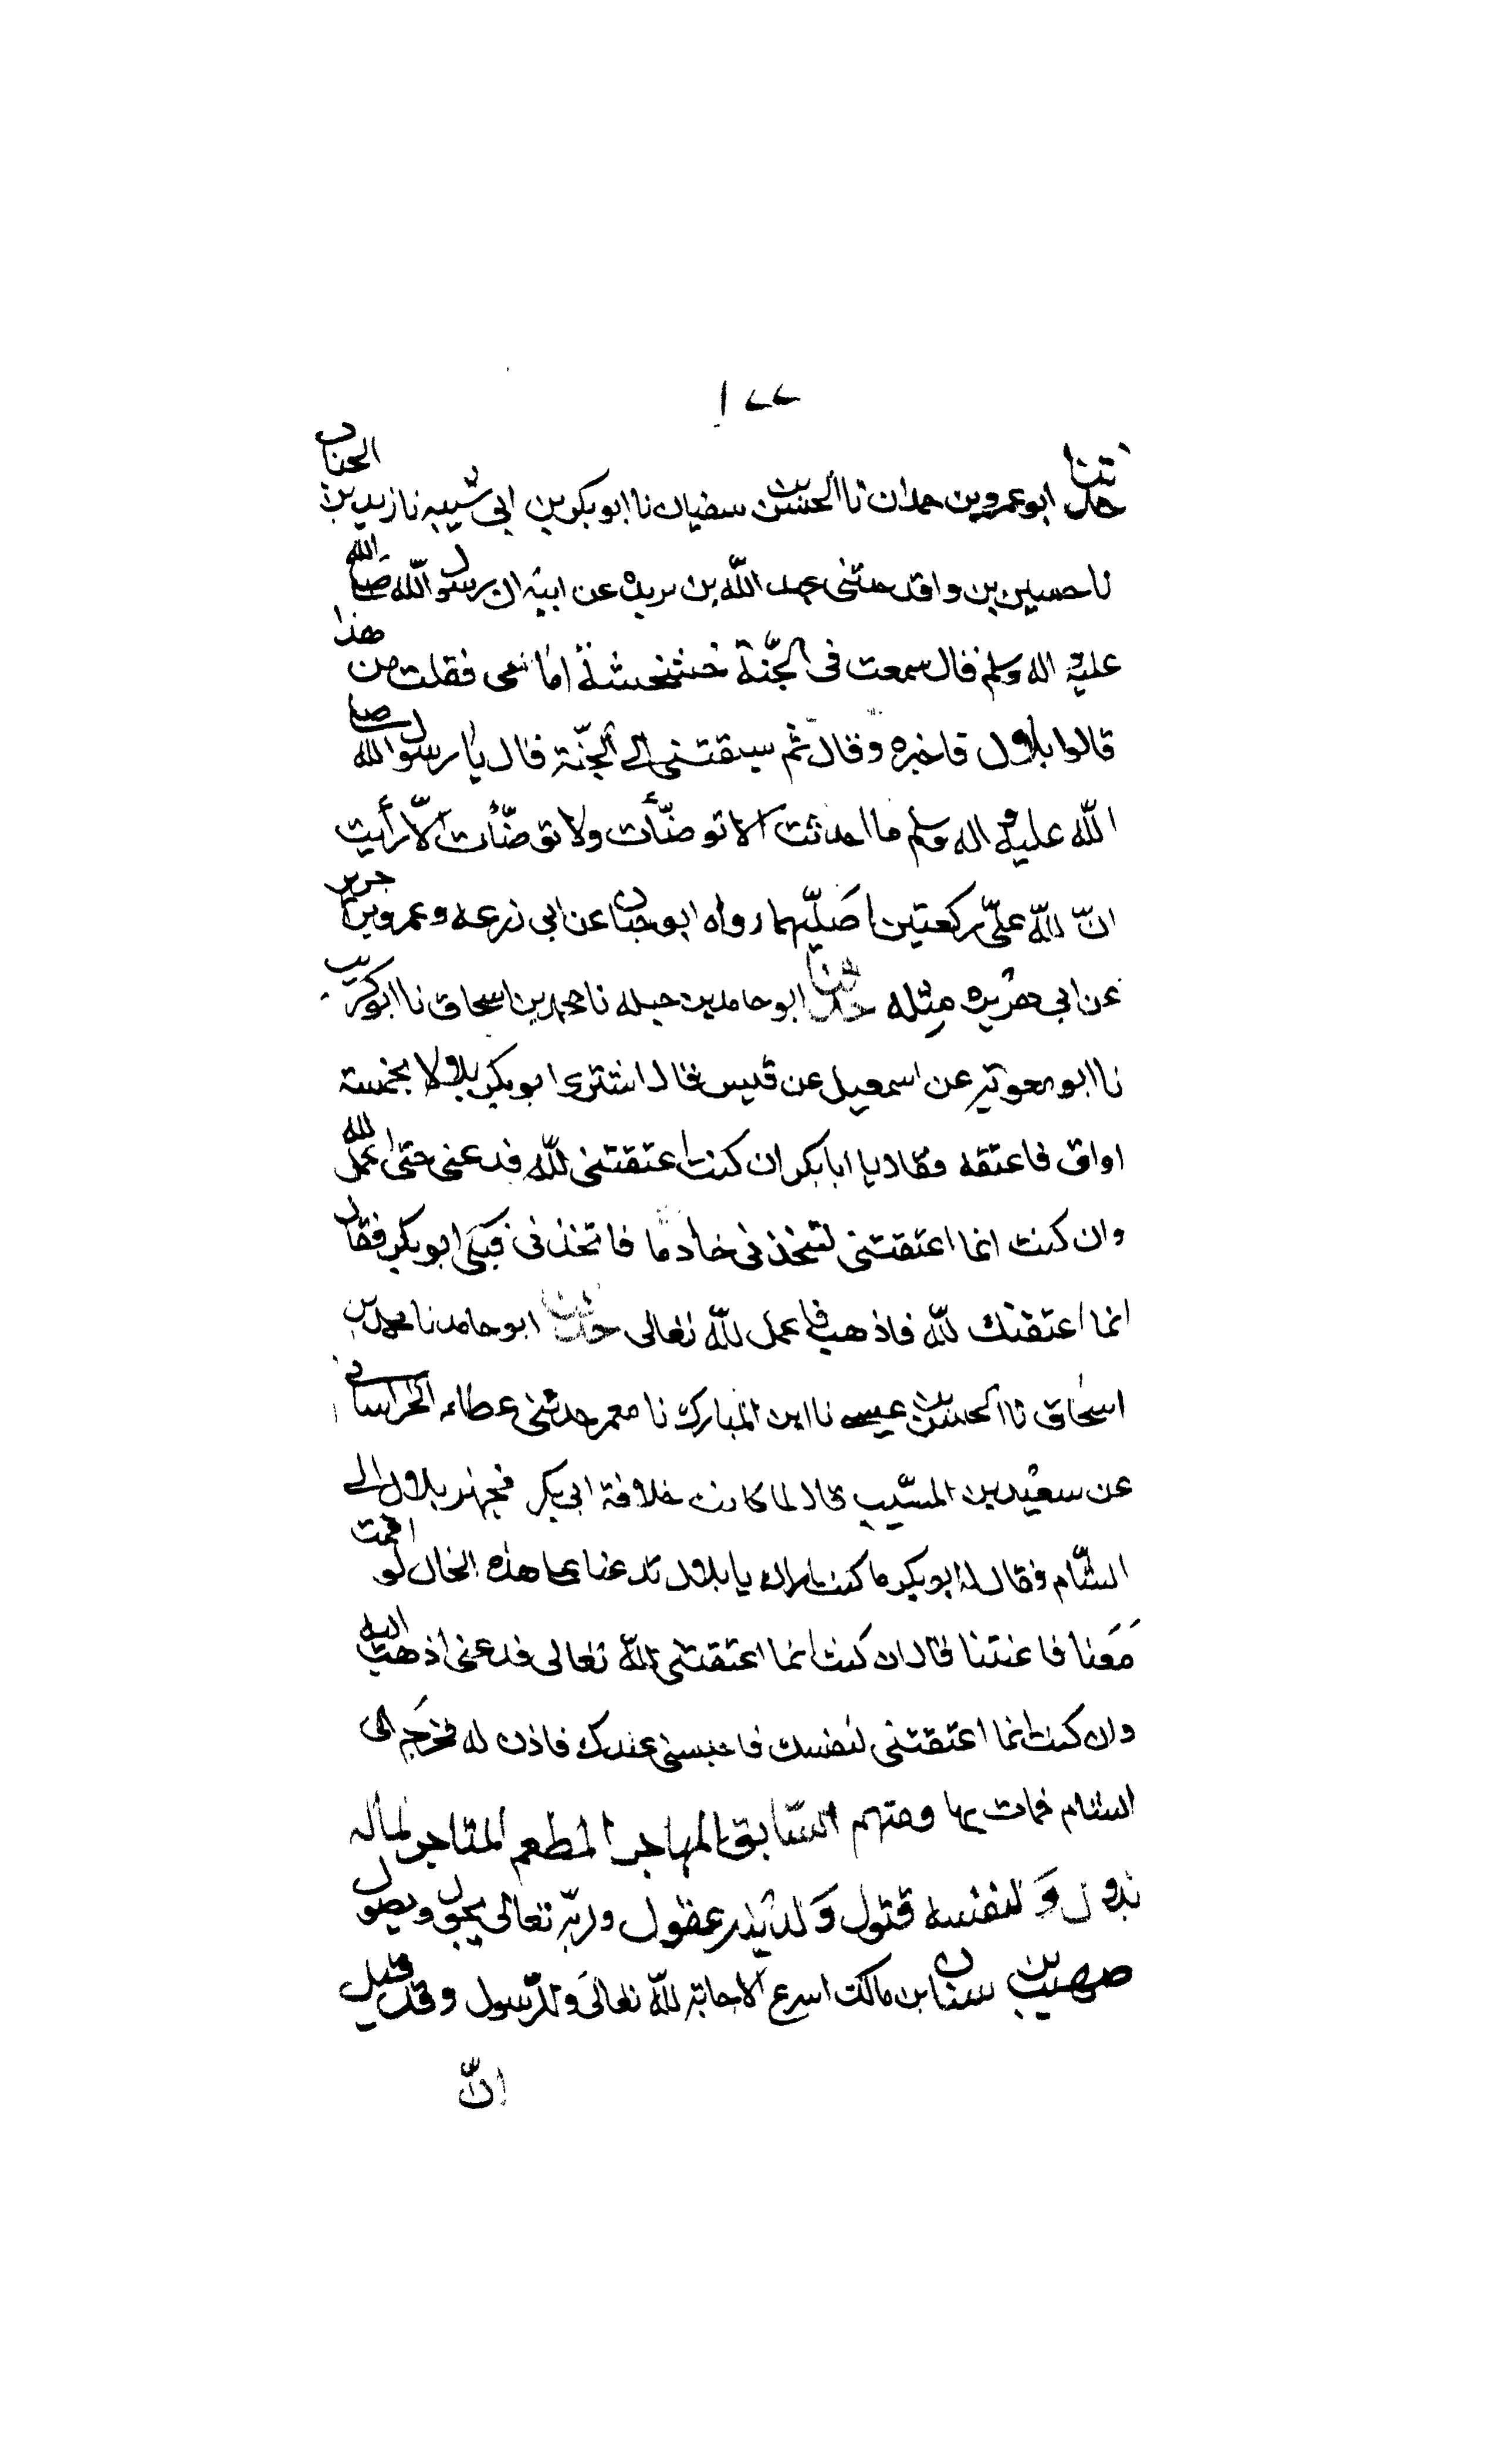 ١٧٧
حدثنا ابو عمرو بن حمدان نا الحسن بن سفيان نا ابو بكر بن ابى شيبه نا زيد بن الحباب
نا حسين بن واقد حدثنى عبد الله بن بريده عن ابيه ان رسول الله صلى الله
عليه واله وسلم قال سمعت فى الجنّة خشخشة امامى فقلت من هذا
قالوا بلال فاخبره وقال ثم سبقتنى الى الجنّة قال يا رسول الله صلى
الله عليه واله وسلم ما احدثت الا توضّأت ولا توضّأت الّا رأيت
انّ للّه علىّ ركعتين اصَلّيهما رواه ابو حيان عن ابى زرعه وعمرو بن جرير
عن ابى هريره مثله حدثنا ابو حامد بن جبله نا محمد بن اسحاق نا ابو كريب
نا ابو معويه عن اسمعيل عن قيس قال اشترى ابو بكر بلالا بخمسة
اواق فاعتقه فقال يا ابا بكر ان كنت اعتقتنى للّه فدعنى حتى اعمل لله
وان كنت انما اعتقتنى لتتخذنى خادما فاتخذنى فبكى ابو بكر فقال
انما اعتقتك للّه فاذهب فاعمل للّه تعالى حدثنا ابو حامد نا محمد بن
اسحاق نا الحسن بن عيسى نا ابن المبارك نا معمر حدثنى عطاء الخراسانى
عن سعيد بن المسيّب قال لما كانت خلافة ابى بكر فجهز بلال الى
الشّام فقال له ابو بكر ما كنت اراك يا بلال تدعنا على هذه الحال لو اقمت
مَعَنا فاعنتنا قال ان كنت انما اعتقتنى للّه تعالى فدعنى اذهب اليه
وان كنت انما اعتقتنى لنفسك فاحبسنى عندك فاذن له فخرَج الى
الشام فمات بها ومنهم السّابق المهاجر المطعم المتاجر لماله
بذول وَلنفسه قتول وَلدينه عقول وربّه تعالى يجول ويصول
صهيب بن سنان بن مالك اسرع الاجابة للّه تعالىَ وللرّسول وقد قيل
انّ